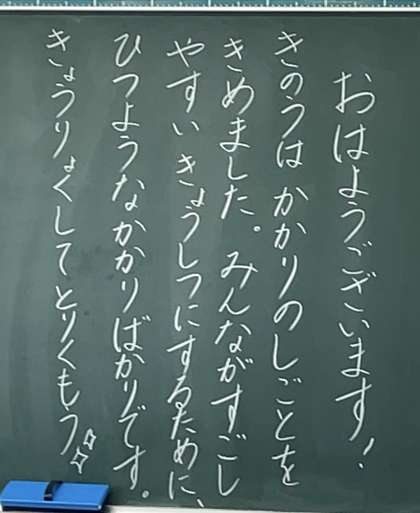 おはようございます!
きのうは かかりのしごとを
きめました。みんながすごし
やすい きょうしつにするために、
ひつような かかりばかりです。
きょうりょくして とりくもう✨